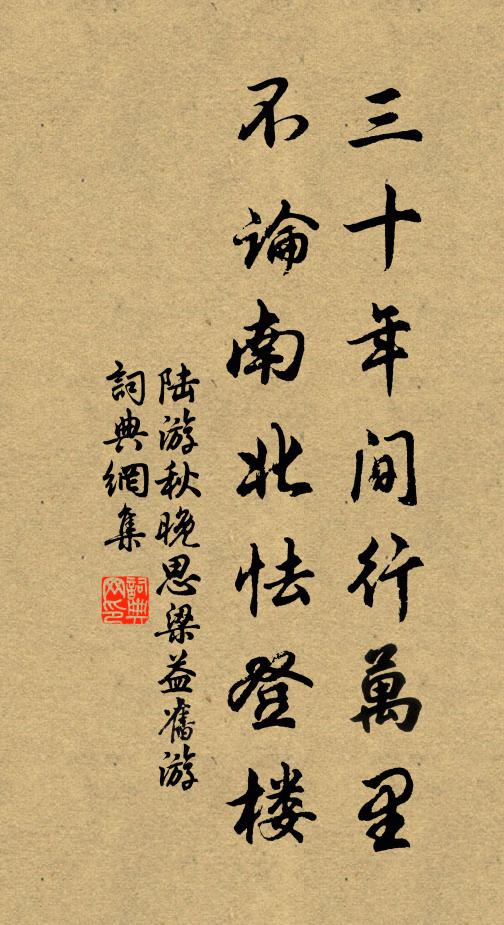 三十年間行萬里
不論南北怯登楼
陆游秋晚思梁益舊游
詞典網集
詞典网印